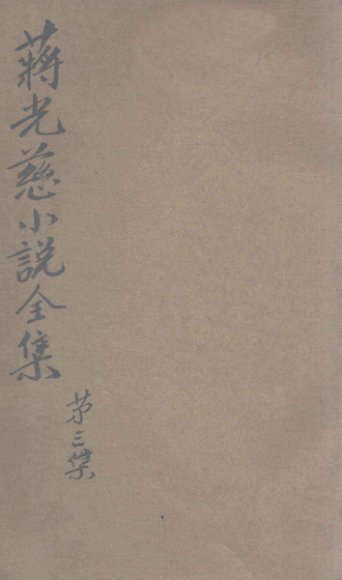 蔣光慈小說全集
第三集